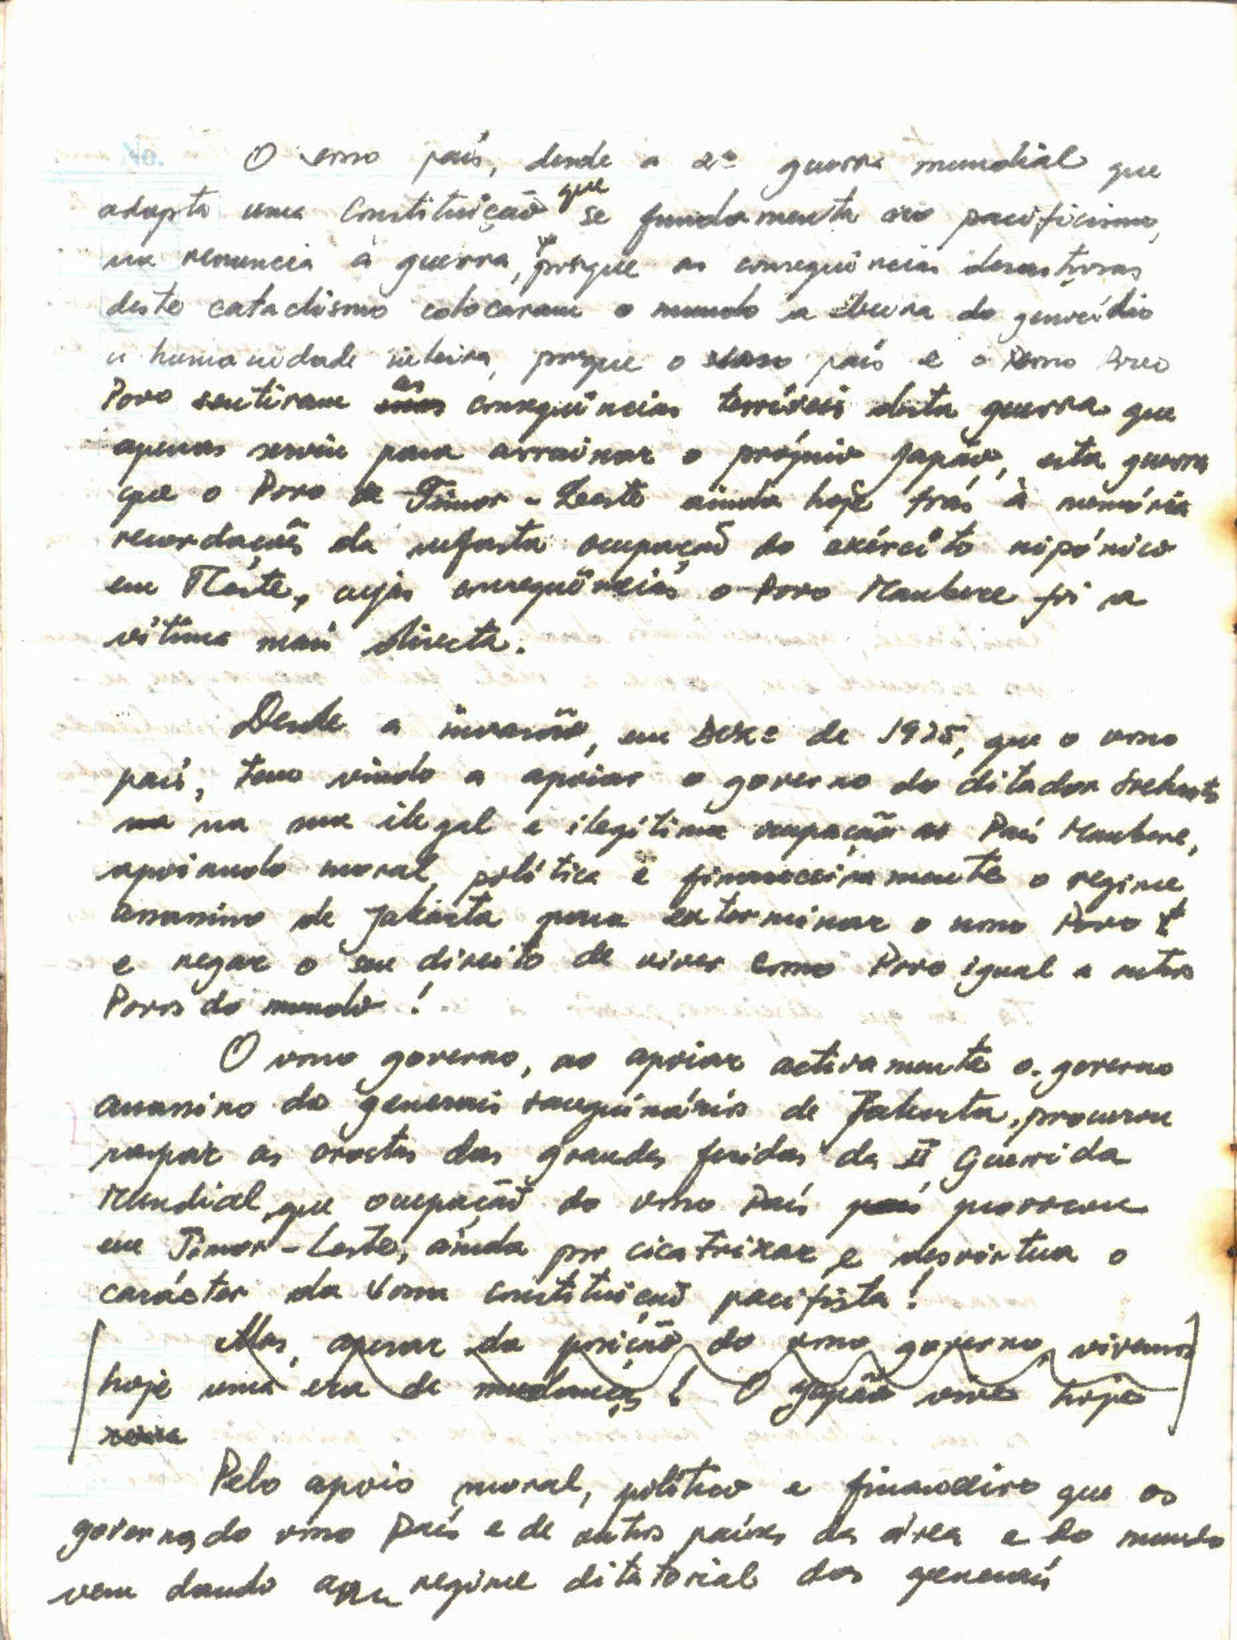 O vosso país, desde a 2ª guerra mundial que
adopta uma Constituição que se fundamenta no pacificismo,
na renuncia à guerra, porque as consequências desastrosas
deste cataclismo colocaram o mundo a beira do genocídio
a humanidade inteira, porque o vosso país e o vosso
Povo sentiram as consequências terríveis desta guerra que
apenas serviu para arruinar o próprio Japão, esta guerra
que o Povo de Timor-Leste ainda hoje trás à memória
recordações da nefasta ocupação do exército nipónico
em T. Leste, cujas consequências o Povo Maubere foi a
vítima mais directa.
Desde a invasão, em Dezº de 1975, que o vosso
país, tem vindo a apoiar o governo do ditador Suharto
na sua ilegal e ilegítima ocupação ao País Maubere,
apoiando moral, política e financeiramente o regime
assassino de Jakarta para exterminar o nosso Povo
e negar o seu direito de viver como Povo igual a outros
Povos do mundo!
O vosso governo, ao apoiar activamente o governo
assassino do generais sanguinários de Jakarta, procurou
raspar as crostas das grandes feridas da II Guerrida
Mundial, que ocupação do vosso País provocou
em Timor-Leste, ainda por cicatrizar e desvirtua o
carácter da vossa Constituição pacifista!
Mas, apesar da posição do vosso governo, vivemos
hoje uma era de mudanças! O Japão vive hoje
Pelo apoio moral, político e financeiro que os
governos do vosso País e de outros países da área e do mundo
vem dando ao regime ditatorial dos generais